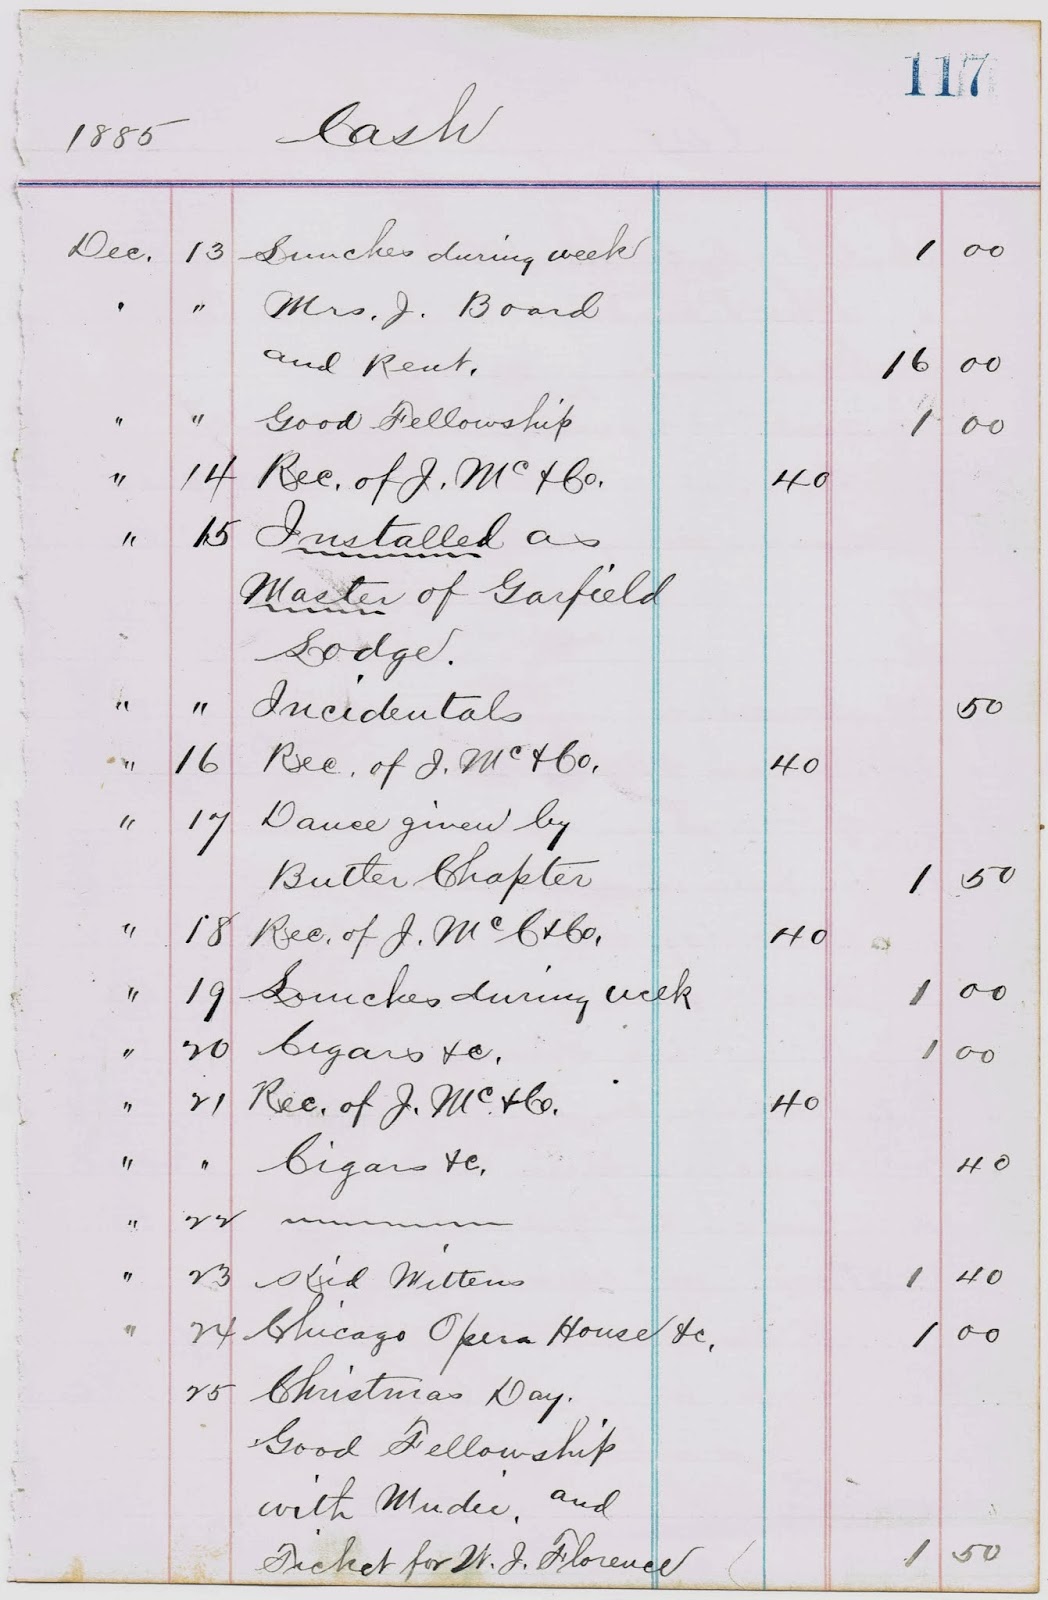 117
1885 Cash
Dec. 13 Lunches during week 1 00
" " Mrs. J. Board
and Rent. 16 00
" " Good Fellowship 1 00
" 14 Rec. of J. Mc & Co. 40
" 15 Installed as
Master of Garfield
Lodge.
" " Incidentals 50
" 16 Rec. of J. Mc & Co. 40
" 17 Dance given by
Butler Chapter 1 50
" 18 Rec. of J. Mc C & Co. 40
" 19 Lunches during week 1 00
" 20 Cigars &c. 1 00
" 21 Rec. of J. Mc. & Co. 40
" " Cigars &c. 40
" 22
" 23 Kid Mittens 1 40
" 24 Chicago Opera House &c. 1 00
25 Christmas Day.
Good Fellowship
with Mudie, and
Ticket for W. J. Florence 1 50